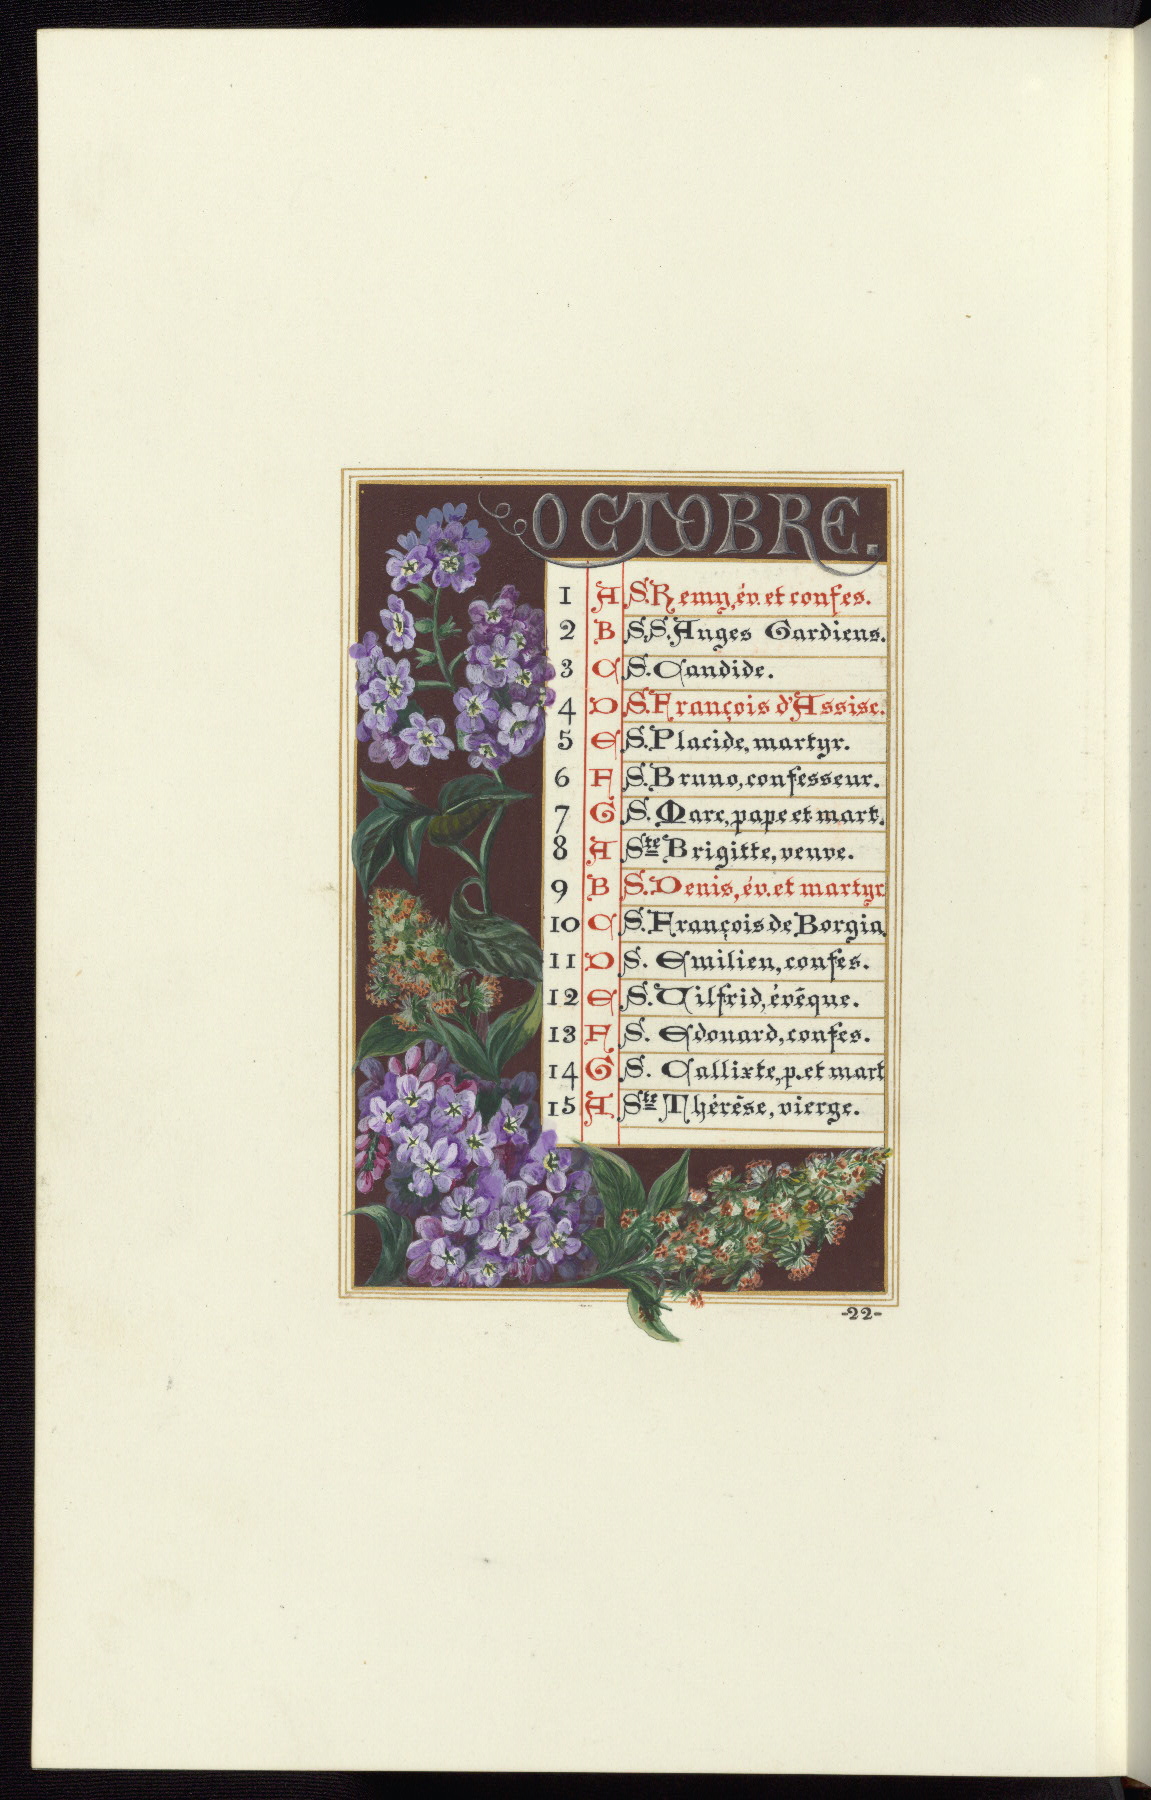 OCTOBRE.
1 A S. Remy, év. et confes.
2 B S.S. Anges Gardiens.
3 C S. Candide.
4 D S. François d'Assise.
5 E S. Placide, martyr.
6 F S. Bruno, confesseur.
7 G S. Marc, pape et mart.
8 A Ste Brigitte, veuve.
9 B S. Denis, év. et martyr
10 C S. François de Borgia
11 D S. Emilien, confes.
12 E S. Vilfrid, évêque.
13 F S. Edouard, confes.
14 G S. Callixte, p. et mart
15 A Ste Thérèse, vierge.
-22-